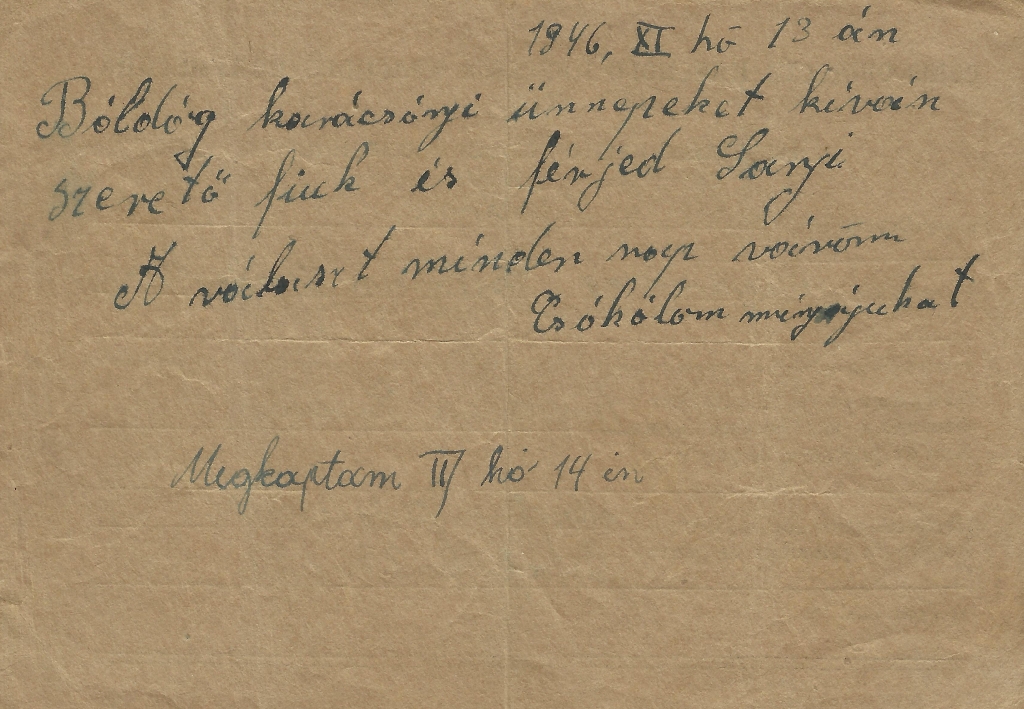 1946, XI hó 13 án
Bóldóg karácsónyi ünnepeket kíván
szerető fiuk és férjed Sanyi
A választ minden nap várom
Csókólom mínyájukat
Megkaptam II hó 14 én